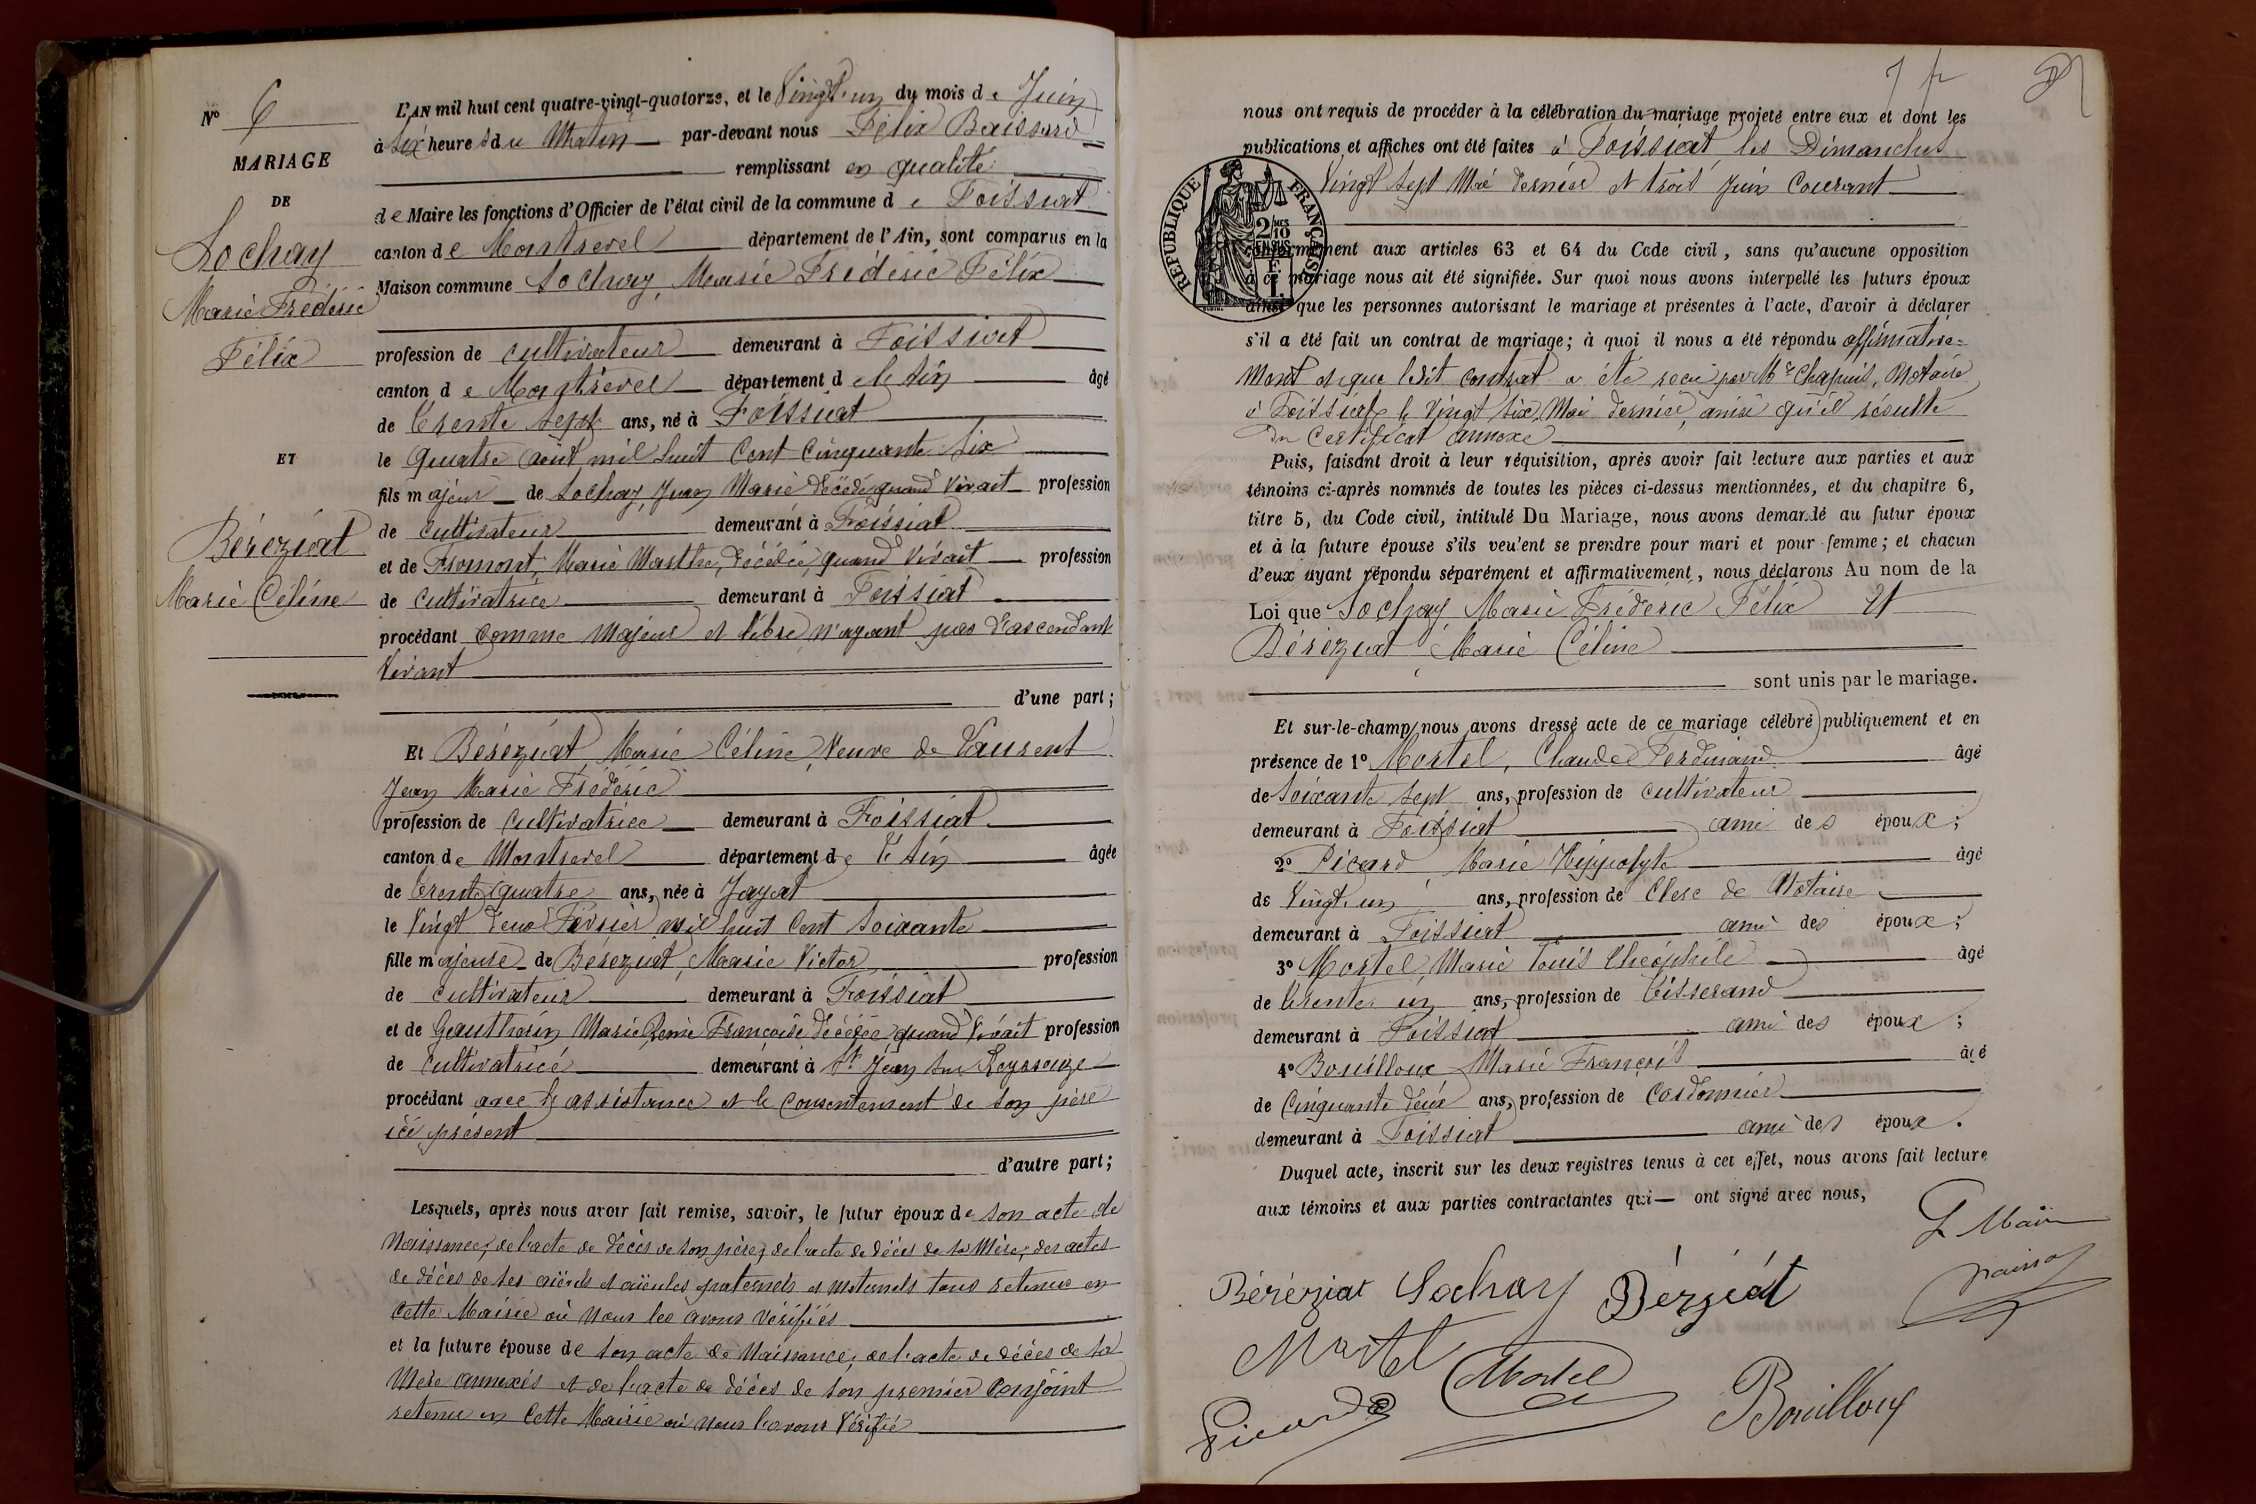 N° 6
MARIAGE
DE
Lochay
Marie Frédéric
Félix
ET
Béréziat
Marie Céline
L'AN mil huit cent quatre-vingt-quatorze, et le Vingt-un du mois de Juin
à six heures du Matin par-devant nous Félix Buissard
remplissant en qualité
de Maire les fonctions d'Officier de l'état civil de la commune de Foissiat
canton de Montrevel département de l'Ain, sont comparus en la
Maison commune Lochay, Marie Frédéric Félix
profession de cultivateur demeurant à Foissiat
canton de Montrevel département de l'Ain âgé
de trente sept ans, né à Foissiat
le quatre août mil huit cent cinquante six
fils majeur de Lochay, Jean Marie décédé quand vivait profession
de cultivateur demeurant à Foissiat
et de Fromont, Marie Marthe, décédée, quand vivait profession
de cultivatrice demeurant à Foissiat
procédant comme majeur et libre n'ayant pas d'ascendant
vivant
d'une part;
Et Béréziat, Marie Céline, Veuve de Laurent
Jean Marie Frédéric
profession de cultivatrice demeurant à Foissiat
canton de Montrevel département de l'Ain âgée
de trente quatre ans, née à Jayat
le vingt deux Février mil huit cent soixante
fille majeure de Béréziat, Marie Victor profession
de cultivateur demeurant à Foissiat
et de Gautherin Marie Françoise décédée quand vivait profession
de cultivatrice demeurant à St Jean sur Reyssouze
procédant avec l'assistance et le consentement de son père
ici présent
d'autre part;
Lesquels, après nous avoir fait remise, savoir, le futur époux de son acte de
Naissance, de l'acte de décès de son père, de l'acte de décès de sa Mère, des actes
de décès de ses aïeuls et aïeules paternels et maternels tous retenus en
cette Mairie où nous les avons vérifiés
et la future épouse de son acte de Naissance, de l'acte de décès de sa
Mère annexés et de l'acte de décès de son premier Conjoint
retenu en cette Mairie où nous l'avons vérifié
nous ont requis de procéder à la célébration du mariage projeté entre eux et dont les
publications et affiches ont été faites à Foissiat les Dimanches
Vingt sept Mai dernier et trois Juin Courant
REPUBLIQUE FRANÇAISE
2/10
EN SUS
1 F.
conformément aux articles 63 et 64 du Code civil, sans qu'aucune opposition
à ce mariage nous ait été signifiée. Sur quoi nous avons interpellé les futurs époux
ainsi que les personnes autorisant le mariage et présentes à l'acte, d'avoir à déclarer
s'il a été fait un contrat de mariage; à quoi il nous a été répondu affirmative=
ment et que ledit contrat a été reçu par Me Chapuis, Notaire
à Foissiat le vingt six Mai dernier, ainsi qu'il résulte
du Certificat annexé
Puis, faisant droit à leur réquisition, après avoir fait lecture aux parties et aux
témoins ci-après nommés de toutes les pièces ci-dessus mentionnées, et du chapitre 6,
titre 5, du Code civil, intitulé Du Mariage, nous avons demandé au futur époux
et à la future épouse s'ils veulent se prendre pour mari et pour femme; et chacun
d'eux ayant répondu séparément et affirmativement, nous déclarons Au nom de la
Loi que Lochay Marie Frédéric Félix et
Béréziat, Marie Céline
sont unis par le mariage.
Et sur-le-champ nous avons dressé acte de ce mariage célébré publiquement et en
présence de 1° Mortel, Claude Ferdinand âgé
de soixante sept ans, profession de cultivateur
demeurant à Foissiat ami des époux;
2° Picard Marie Hippolyte âgé
de vingt-un ans, profession de Clerc de Notaire
demeurant à Foissiat ami des époux;
3° Mortel, Marie Louis Théophile âgé
de trente un ans, profession de tisserand
demeurant à Foissiat ami des époux;
4° Bouilloux Marie François âgé
de cinquante deux ans, profession de Cordonnier
demeurant à Foissiat ami des époux.
Duquel acte, inscrit sur les deux registres tenus à cet effet, nous avons fait lecture
aux témoins et aux parties contractantes qui ont signé avec nous,
Béréziat Lochay Béréziat
Mortel Mortel
Picard Bouilloux